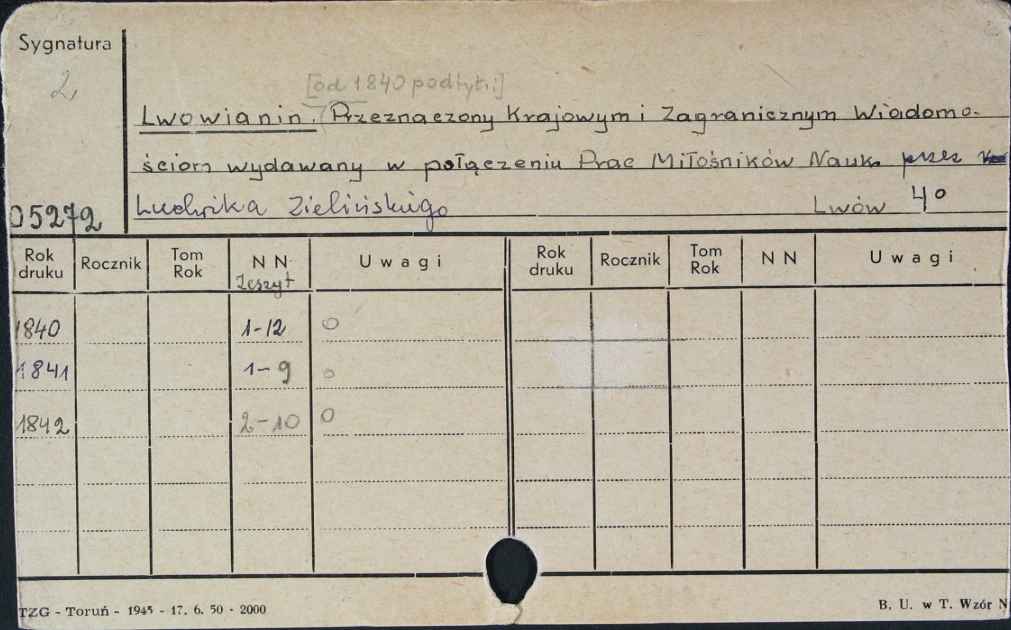 Sygnatura
2,
[od 1840 podtyt.:]
Lwowianin. Przeznaczony Krajowym i Zagranicznym Wiadomo-
ściom wydawany w połączeniu Prac Miłośników Nauk przez
Ludwika Zielińskiego Lwów 4°
05272
Rok druku Rocznik Tom Rok N N Zeszyt Uwagi Rok druku Rocznik Tom Rok N N Uwagi
1840 1-12 O
1841 1-9 O
1842 2-10 O
TZG - Toruń - 1945 - 17. 6. 50 - 2000 B. U. w T. Wzór N